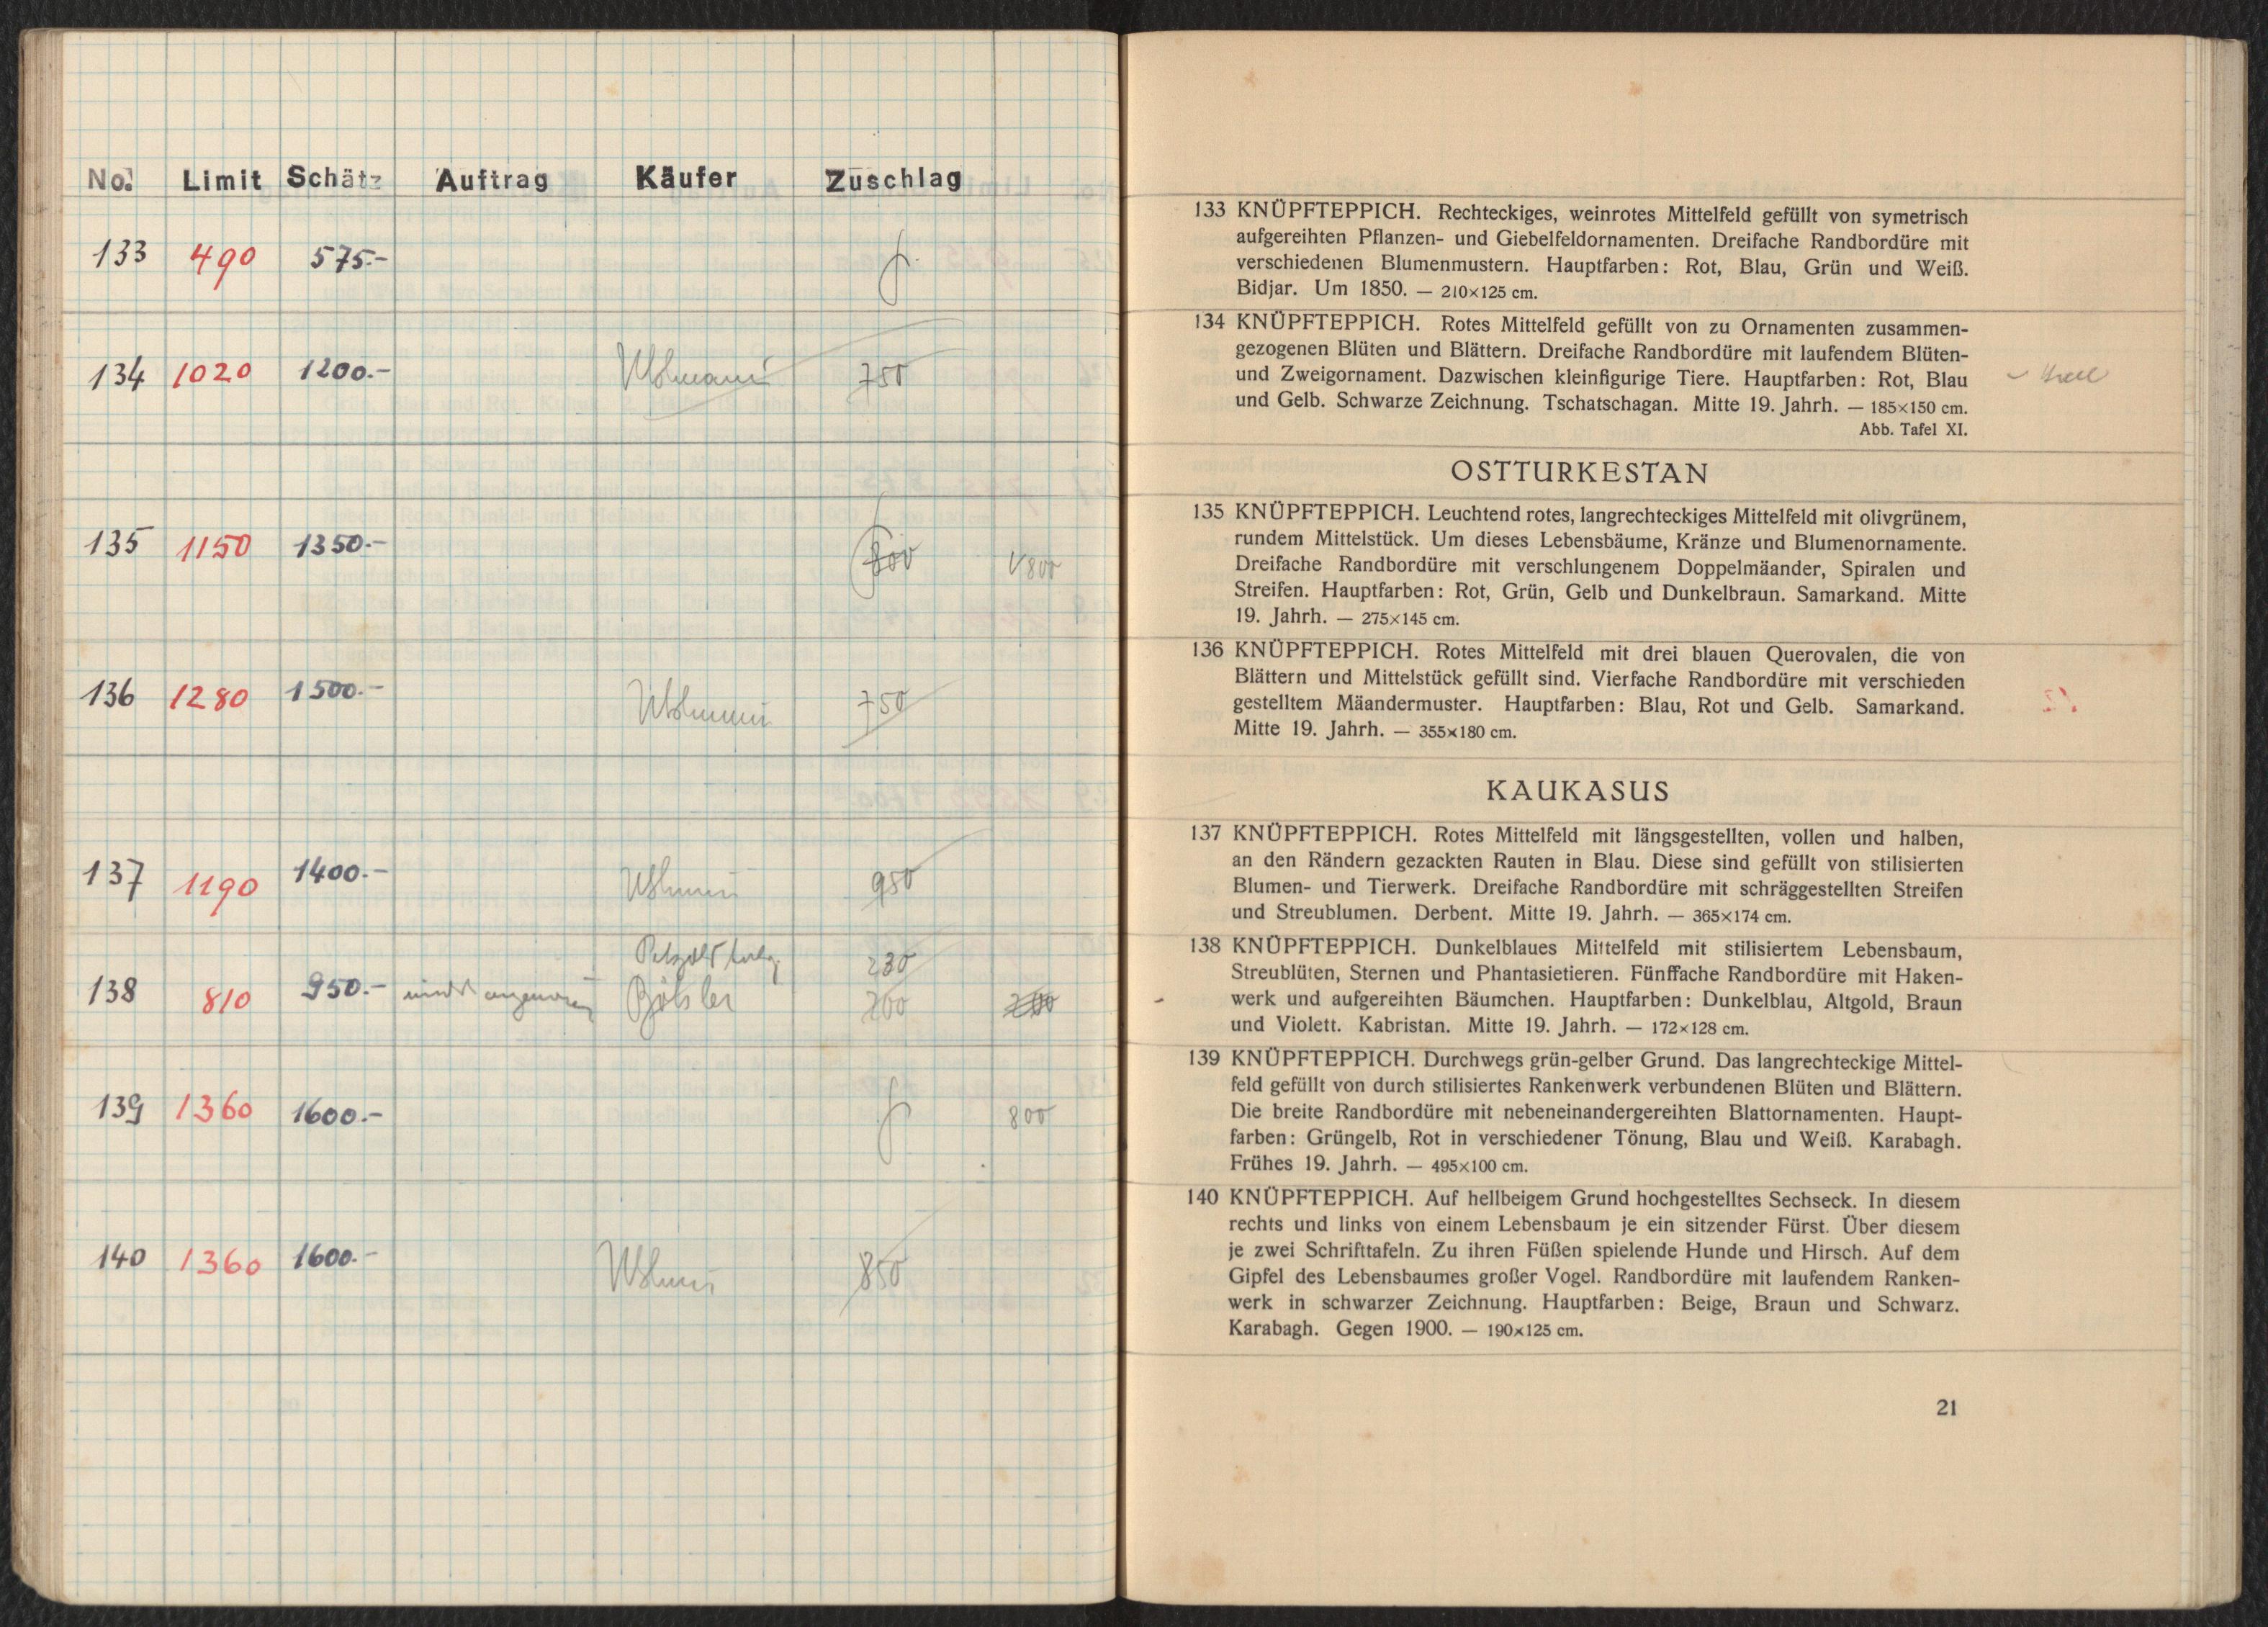 No. Limit Schätz Auftrag Käufer Zuschlag
133 490 575.-
134 1020 1200.- 750
135 1150 1350.- 800 800
136 1280 1500.- 750
137 1190 1400.- 950
230
138 810 950.- 200
139 1360 1600.- 800
140 1360 1600.- 850
133 KNÜPFTEPPICH. Rechteckiges, weinrotes Mittelfeld gefüllt von symetrisch
aufgereihten Pflanzen- und Giebelfeldornamenten. Dreifache Randbordüre mit
verschiedenen Blumenmustern. Hauptfarben: Rot, Blau, Grün und Weiß.
Bidjar. Um 1850. — 210×125 cm.
134 KNÜPFTEPPICH. Rotes Mittelfeld gefüllt von zu Ornamenten zusammen-
gezogenen Blüten und Blättern. Dreifache Randbordüre mit laufendem Blüten-
und Zweigornament. Dazwischen kleinfigurige Tiere. Hauptfarben: Rot, Blau
und Gelb. Schwarze Zeichnung. Tschatschagan. Mitte 19. Jahrh. — 185×150 cm.
Abb. Tafel XI.
OSTTURKESTAN
135 KNÜPFTEPPICH. Leuchtend rotes, langrechteckiges Mittelfeld mit olivgrünem,
rundem Mittelstück. Um dieses Lebensbäume, Kränze und Blumenornamente.
Dreifache Randbordüre mit verschlungenem Doppelmäander, Spiralen und
Streifen. Hauptfarben: Rot, Grün, Gelb und Dunkelbraun. Samarkand. Mitte
19. Jahrh. — 275×145 cm.
136 KNÜPFTEPPICH. Rotes Mittelfeld mit drei blauen Querovalen, die von
Blättern und Mittelstück gefüllt sind. Vierfache Randbordüre mit verschieden
gestelltem Mäandermuster. Hauptfarben: Blau, Rot und Gelb. Samarkand.
Mitte 19. Jahrh. — 355×180 cm.
KAUKASUS
137 KNÜPFTEPPICH. Rotes Mittelfeld mit längsgestellten, vollen und halben,
an den Rändern gezackten Rauten in Blau. Diese sind gefüllt von stilisierten
Blumen- und Tierwerk. Dreifache Randbordüre mit schräggestellten Streifen
und Streublumen. Derbent. Mitte 19. Jahrh. — 365×174 cm.
138 KNÜPFTEPPICH. Dunkelblaues Mittelfeld mit stilisiertem Lebensbaum,
Streublüten, Sternen und Phantasietieren. Fünffache Randbordüre mit Haken-
werk und aufgereihten Bäumchen. Hauptfarben: Dunkelblau, Altgold, Braun
und Violett. Kabristan. Mitte 19. Jahrh. — 172×128 cm.
139 KNÜPFTEPPICH. Durchwegs grün-gelber Grund. Das langrechteckige Mittel-
feld gefüllt von durch stilisiertes Rankenwerk verbundenen Blüten und Blättern.
Die breite Randbordüre mit nebeneinandergereihten Blattornamenten. Haupt-
farben: Grüngelb, Rot in verschiedener Tönung, Blau und Weiß. Karabagh.
Frühes 19. Jahrh. — 495×100 cm.
140 KNÜPFTEPPICH. Auf hellbeigem Grund hochgestelltes Sechseck. In diesem
rechts und links von einem Lebensbaum je ein sitzender Fürst. Über diesem
je zwei Schrifttafeln. Zu ihren Füßen spielende Hunde und Hirsch. Auf dem
Gipfel des Lebensbaumes großer Vogel. Randbordüre mit laufendem Ranken-
werk in schwarzer Zeichnung. Hauptfarben: Beige, Braun und Schwarz.
Karabagh. Gegen 1900. — 190×125 cm.
21